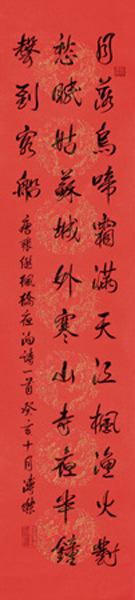 月落烏啼霜滿天江楓漁火對
愁眠姑蘇城外寒山寺夜半鐘
聲到客船
唐張繼楓橋夜泊詩一首癸亥十月溥傑